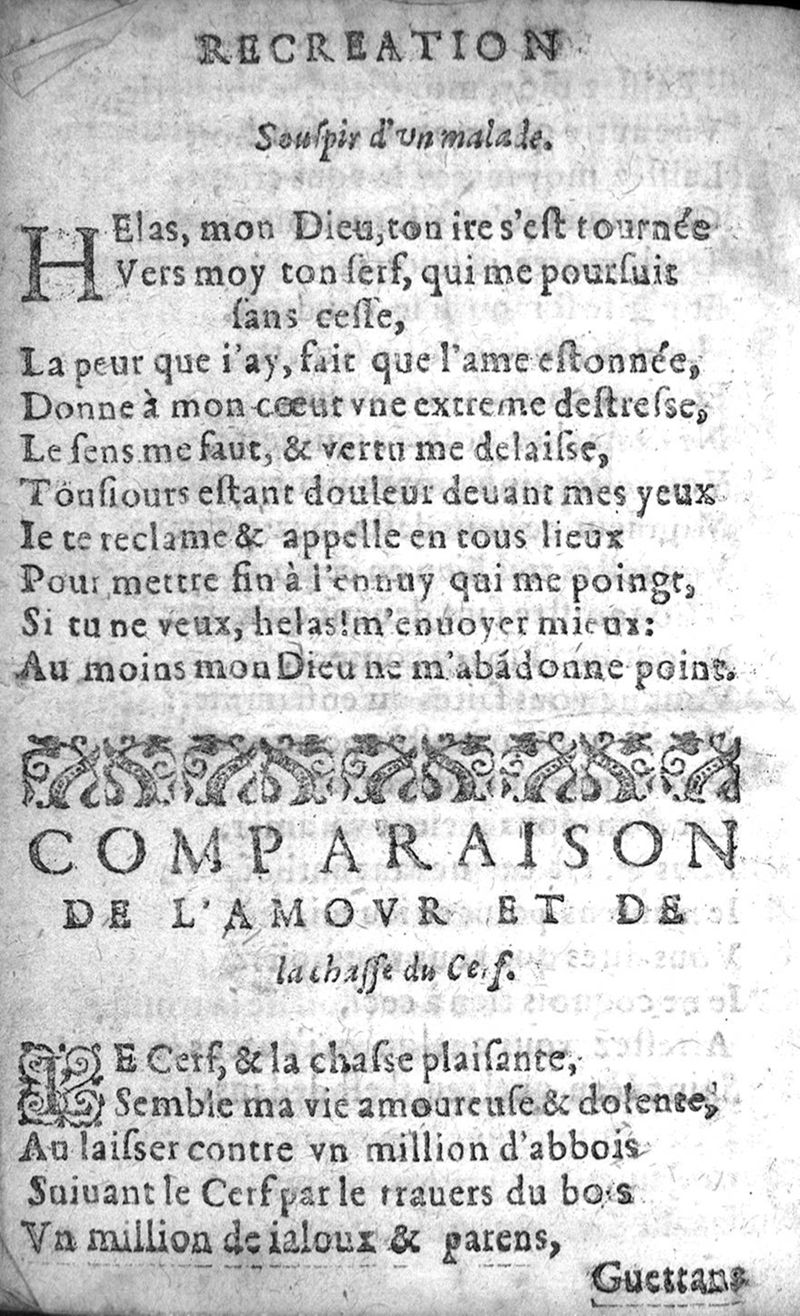 RECREATION
Souſpir d'vn malade.
HElas, mon Dieu, ton ire s'eſt tournée
Vers moy ton ſerf, qui me pourſuit
ſans ceſſe,
La peur que i'ay, fait que l'ame eſtonnée,
Donne à mon cœur vne extreme deſtreſse,
Le ſens me faut, & vertu me delaiſse,
Touſiours eſtant douleur deuant mes yeux
Ie te reclame & appelle en tous lieux
Pour mettre fin à l'ennuy qui me poingt,
Si tu ne veux, helas! m'enuoyer mieux:
Au moins mon Dieu ne m'abãdonne point.
COMPARAISON
DE L'AMOVR ET DE
la chaſſe du Cerf.
LE Cerf, & la chaſse plaiſante,
Semble ma vie amoureuſe & dolente,
Au laiſser contre vn million d'abbois
Suiuant le Cerf par le trauers du bois
Vn million de ialoux & parens,
Guettans